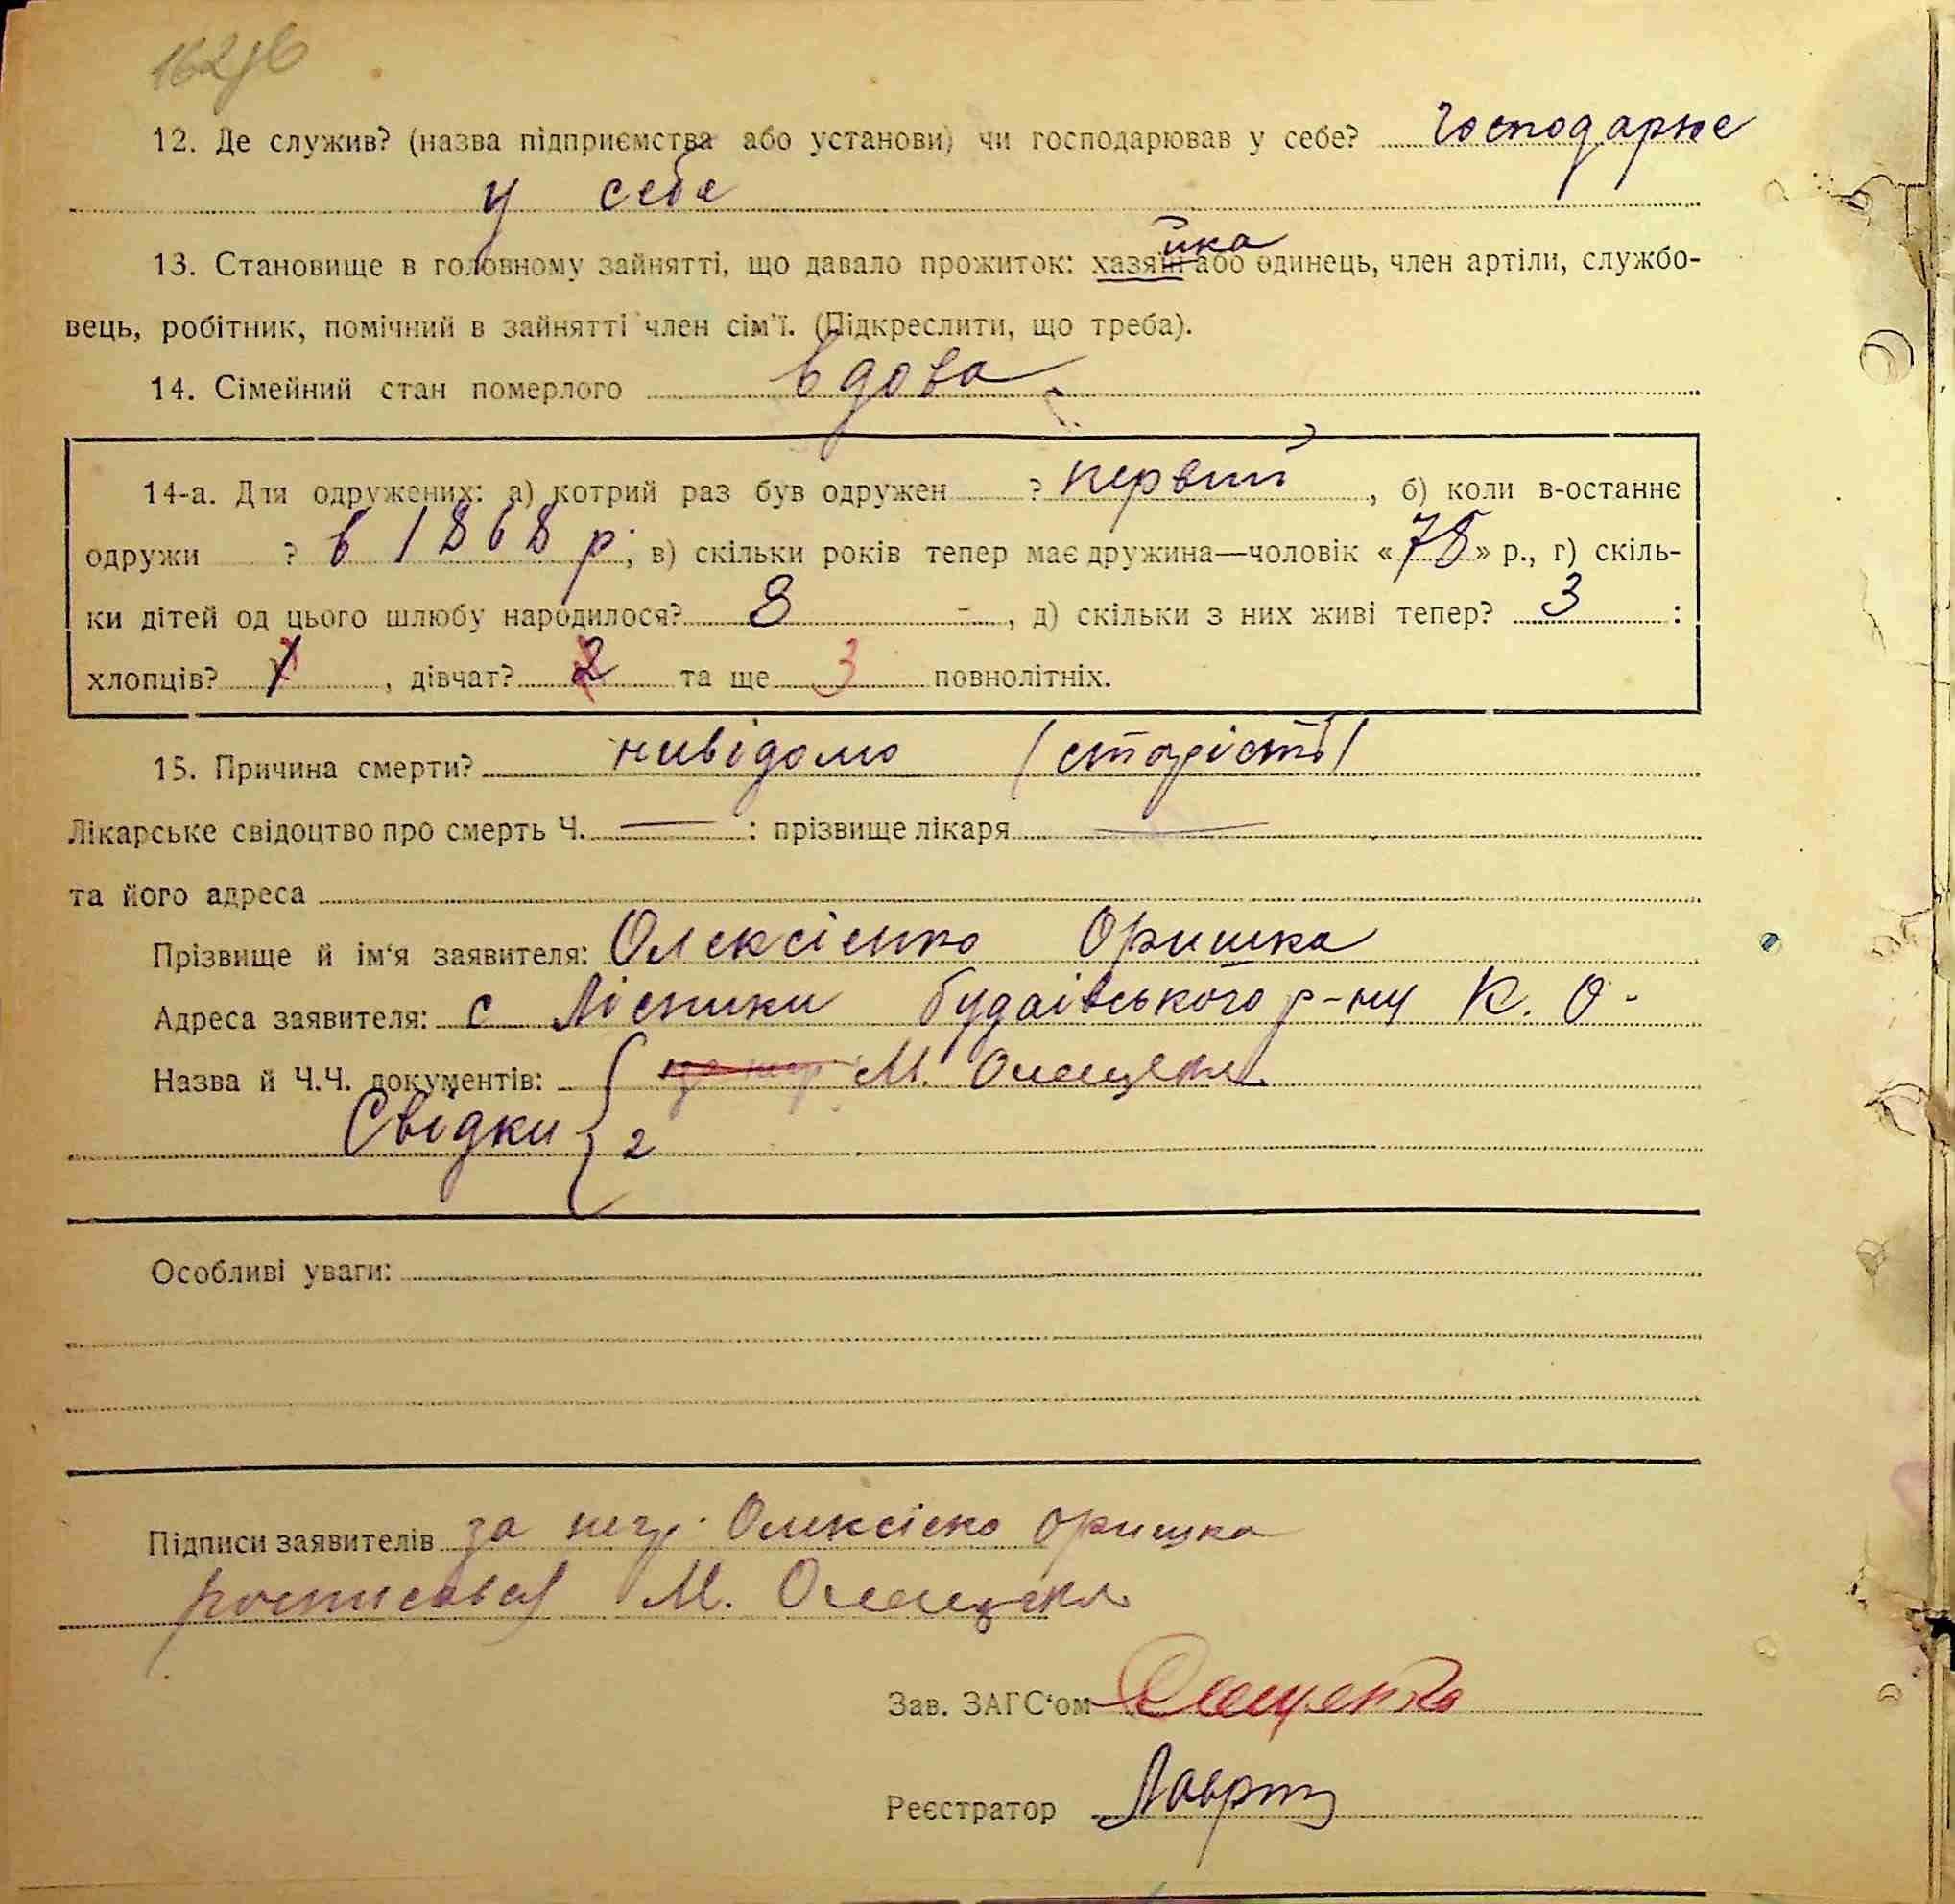 12. Де служив? (назва підприємства або установи) чи господарював у себе? господарює
у себе
13. Становище в головному зайнятті, що давало прожиток: хазяїн йка або одинець, член артіли, службо-
вець, робітник, помічний в зайнятті член сім'ї. (Підкреслити, що треба).
14. Сімейний стан померлого вдова
14-а. Для одружених: а) котрий раз був одружен ? первий, б) коли в-останнє
одружи ? в 1868 р., в) скільки років тепер має дружина—чоловік «78» р., г) скіль-
ки дітей од цього шлюбу народилося? 8, д) скільки з них живі тепер? 3 :
хлопців? 1, дівчат? 2 та ще 3 повнолітніх.
15. Причина смерти? нивідомо (старість)
Лікарське свідоцтво про смерть Ч. — : прізвище лікаря —
та його адреса
Прізвище й ім'я заявителя: Олексієнко Оришка
Адреса заявителя: с Лісники будаївського р-ну К. О.
Назва й Ч.Ч. документів: М.
Свідки 2
Особливі уваги:
Підписи заявителів за негр. Олексієко Оришка
росписався М.
Зав. ЗАГС'ом
Реєстратор